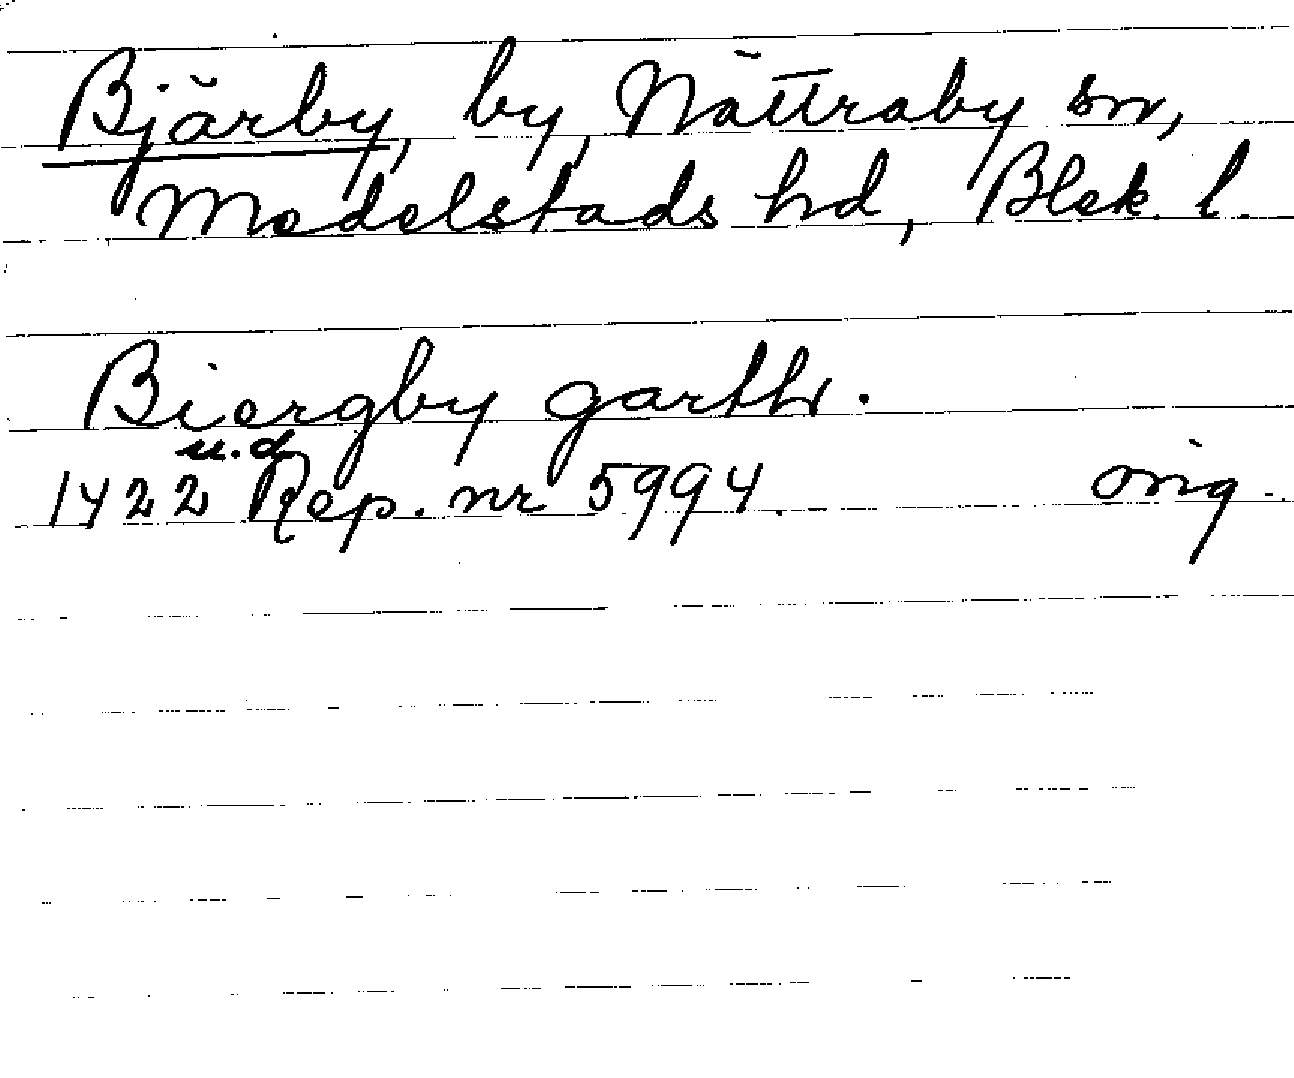 Bjärby, by, Nättraby sn,
Medelstads hd, Blek. l.
Biergby garthr.
u.d
1422 Rep. nr 5994. orig.